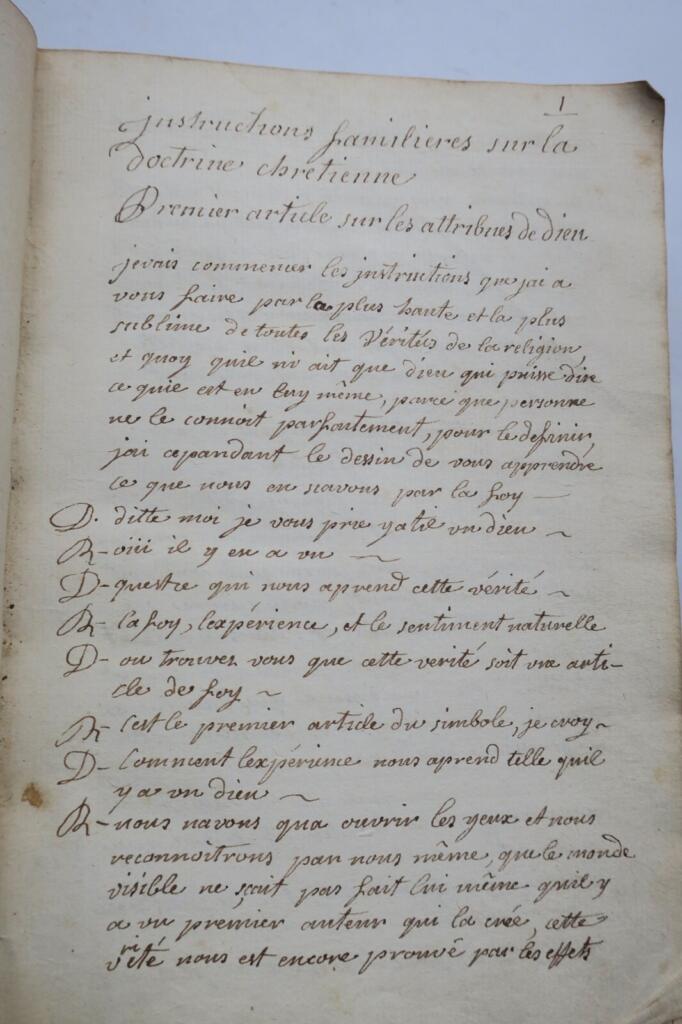 1
jnstructions familieres sur la
doctrine chretienne
Premier article sur les attribues de dieu
jevais commencer les jnstructions que jai a
vous faire par la plus haute et la plus
sublime de toutes les Vérités de la religion,
et quoy quil ni ait que dieu qui puisse dire
ce quie est en luy même, parce que personne
ne le connoit parfaitement, pour le definir,
jai cepandant le dessin de vous apprendre
ce que nous en scavons par la foy —
D. ditte moi je vous prie yatil vn dieu ~
R- oiii il y en a vn ~
D- questce qui nous aprend cette vérité ~
R- la foy, lexpérience, et le sentiment naturelle
D- ou trouvez vous que cette verité soit vne arti-
cle de foy ~
R- Cest le premier article du simbole, je croy ~
D- Comment lexpérience nous aprend telle quil
y a vn dieu ~
R- nous navons qua ouvrir les yeux et nous
reconnoitrons par nous même, que le monde
visible ne sçait pas fait lui même quil y
a vn premier auteur qui la crée, cette
vérité nous est encore prouvé par les effets